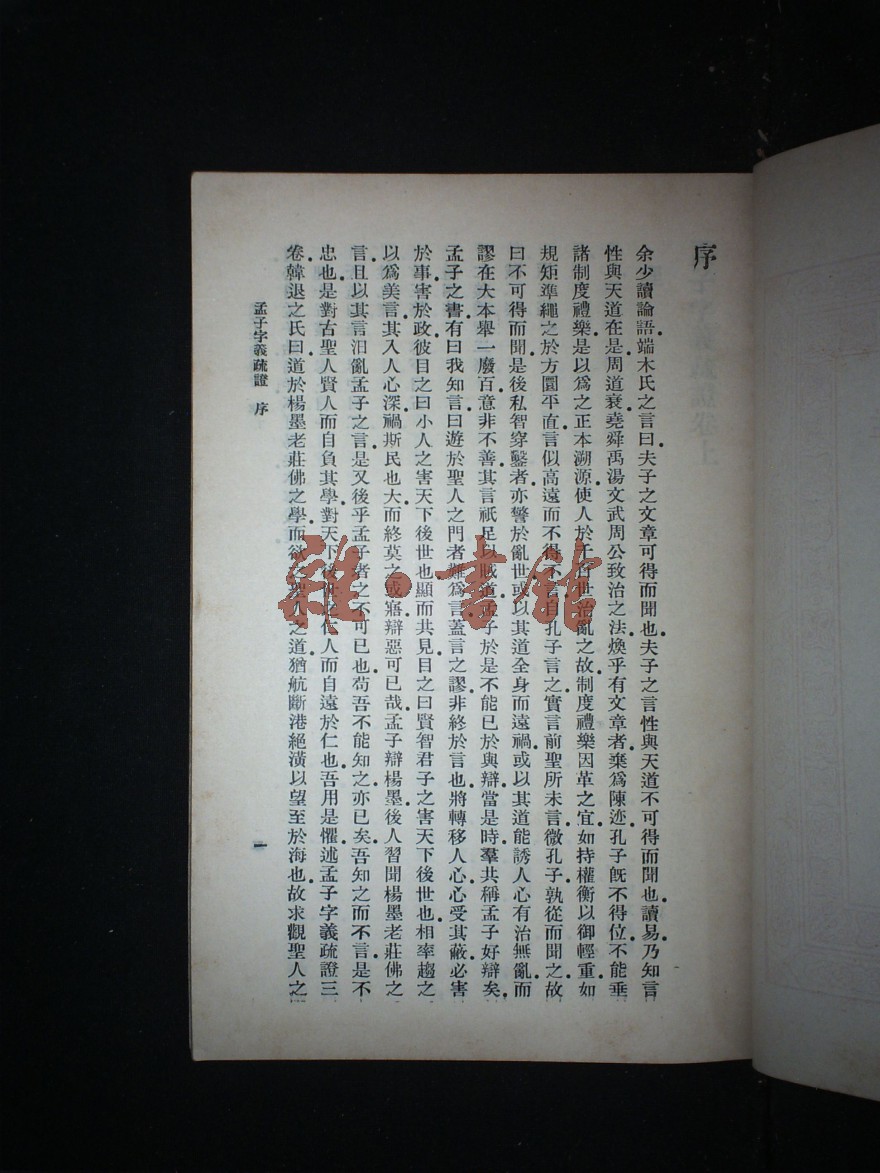 序
余少讀論語端木氏之言曰夫子之文章可得而聞也夫子之言性與天道不可得而聞也讀易乃知言
性與天道在是周道衰堯舜禹湯文武周公致治之法煥乎有文章者棄爲陳迹孔子旣不得位不能垂
諸制度禮樂是以爲之正本溯源使人於千百世治亂之故制度禮樂因革之宜如持權衡以御輕重如
規矩準繩之於方圓平直言似高遠而不得不言自孔子言之實言前聖所未言微孔子孰從而聞之故
曰不可得而聞是後私智穿鑿者亦警於亂世或以其道全身而遠禍或以其道能誘人心有治無亂而
謬在大本舉一廢百意非不善其言祇足以賊道孟子於是不能已於與辯當是時羣共稱孟子好辯矣
孟子之書有曰我知言曰遊於聖人之門者難爲言蓋言之謬非終於言也將轉移人心心受其蔽必害
於事害於政彼目之曰小人之害天下後世也顯而共見目之曰賢智君子之害天下後世也相率趨之
以爲美言其入人心深禍斯民也大而終莫之或寤辯惡可已哉孟子辯楊墨後人習聞楊墨老莊佛之
言且以其言汨亂孟子之言是又後乎孟子者之不可已也苟吾不能知之亦已矣吾知之而不言是不
忠也是對古聖人賢人而自負其學對天下後世之仁人而自遠於仁也吾用是懼述孟子字義疏證三
卷韓退之氏曰道於楊墨老莊佛之學而欲之聖人之道猶航斷港絕潢以望至於海也故求觀聖人之
孟子字義疏證 序
一
雜·書館